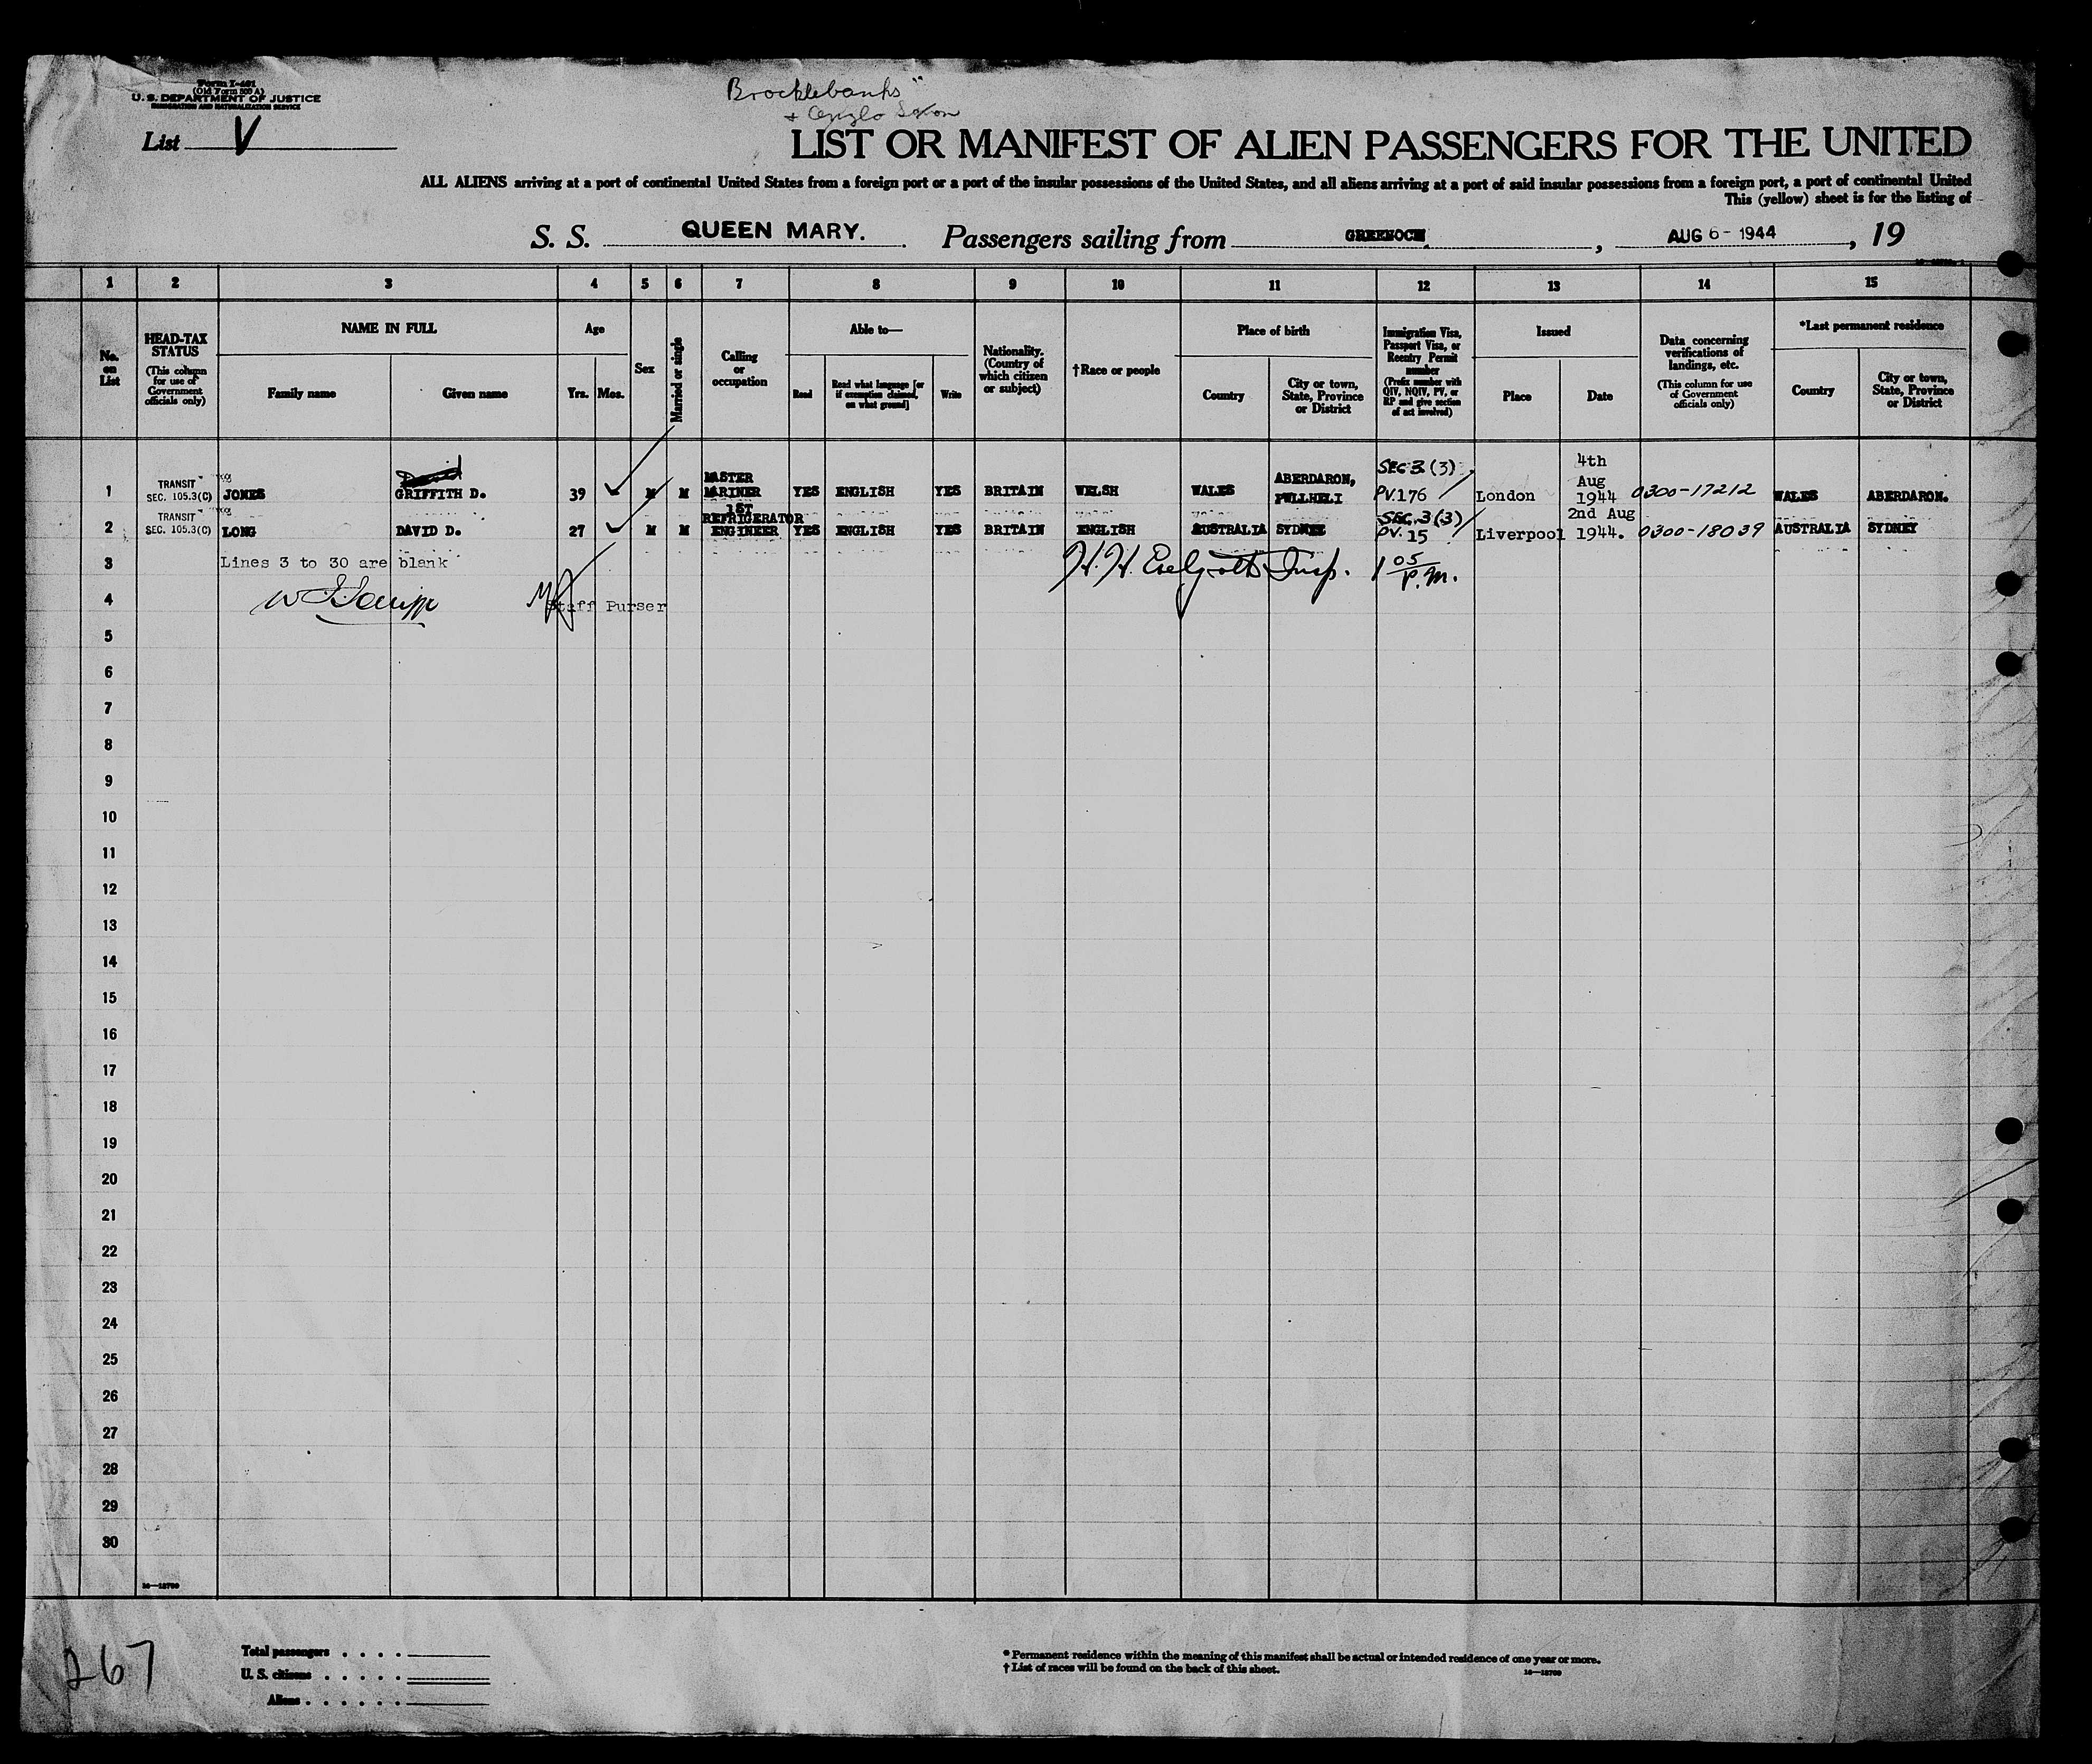 Form I-481
(Old Form 500 A)
U. S. DEPARTMENT OF JUSTICE
IMMIGRATION AND NATURALIZATION SERVICE
Brocklebanks"
+ Anglo Saxon
List V
LIST OR MANIFEST OF ALIEN PASSENGERS FOR THE UNITED
ALL ALIENS arriving at a port of continental United States from a foreign port or a port of the insular possessions of the United States, and all aliens arriving at a port of said insular possessions from a foreign port, a port of continental United
This (yellow) sheet is for the listing of
S. S. QUEEN MARY. Passengers sailing from GREENOCK, AUG 6 - 1944, 19
1 2 3 4 5 6 7 8 9 10 11 12 13 14 15
No. on List
HEAD-TAX STATUS
(This column for use of Government officials only)
NAME IN FULL
Family name Given name
Age
Yrs. Mos.
Sex
Married or single
Calling or occupation
Able to—
Read Read what language [or if exemption claimed, on what ground] Write
Nationality. (Country of which citizen or subject)
†Race or people
Place of birth
Country City or town, State, Province or District
Immigration Visa, Passport Visa, or Reentry Permit number
(Prefix number with QIV, NQIV, PV, or RP and give section of act involved)
Issued
Place Date
Data concerning verifications of landings, etc.
(This column for use of Government officials only)
*Last permanent residence
Country City or town, State, Province or District
1 TRANSIT SEC. 105.3(C) JONES GRIFFITH D. 39 M M MASTER MARINER YES ENGLISH YES BRITAIN WELSH WALES ABERDARON, PWLLHELI SEC 3 (3) PV.176 London 4th Aug 1944 0300-17212 WALES ABERDARON.
2 TRANSIT SEC. 105.3(C) LONG DAVID D. 27 M M 1ST REFRIGERATOR ENGINEER YES ENGLISH YES BRITAIN ENGLISH AUSTRALIA SYDNEY SEC. 3 (3) PV. 15 Liverpool 2nd Aug 1944. 0300-18039 AUSTRALIA SYDNEY
3 Lines 3 to 30 are blank Insp. 1 05 P.M.
4 Staff Purser
5
6
7
8
9
10
11
12
13
14
15
16
17
18
19
20
21
22
23
24
25
26
27
28
29
30
267
Total passengers . . . .
U. S. citizens . . . . .
Aliens . . . . . .
* Permanent residence within the meaning of this manifest shall be actual or intended residence of one year or more.
† List of races will be found on the back of this sheet.